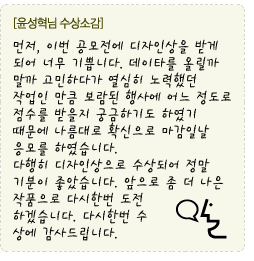 [윤성혁님 수상소감]
먼저, 이번 공모전에 디자인상을 받게
되어 너무 기쁩니다. 데이타를 올릴까
말까 고민하다가 열심히 노력했던
작업인 만큼 보람된 행사에 어느 정도로
점수를 받을지 궁금하기도 하였기
때문에 나름대로 확신으로 마감일날
응모를 하였습니다.
다행히 디자인상으로 수상되어 정말
기분이 좋았습니다. 앞으로 좀 더 나은
작품으로 다시한번 도전
하겠습니다. 다시한번 수
상에 감사드립니다.